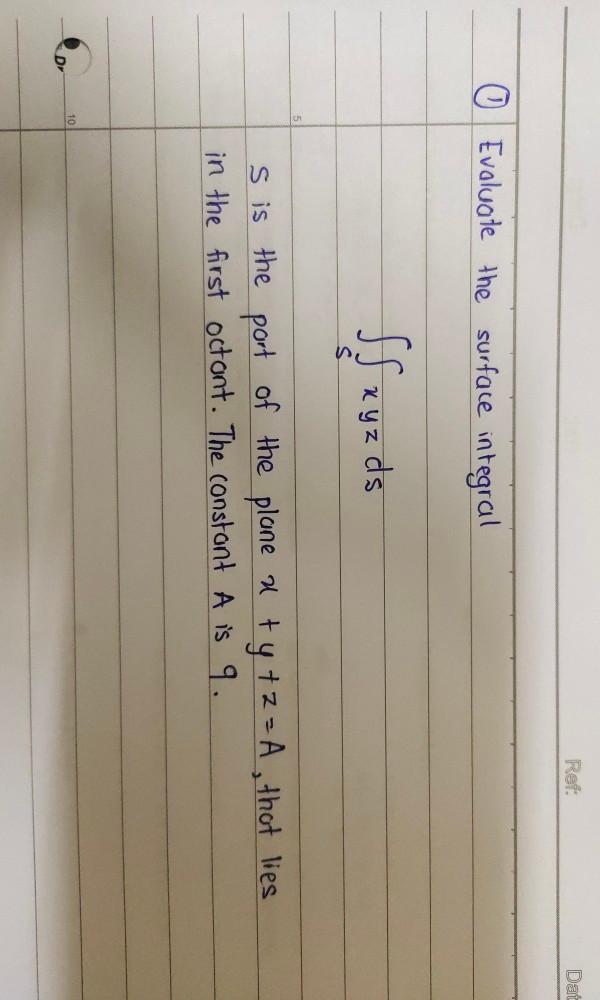 Ref:
Dat
① Evaluate the surface integral
∫∫ xyz ds
S
5
S is the part of the plane x + y + z = A, that lies
in the first octant. The constant A is 9.
10
Dr